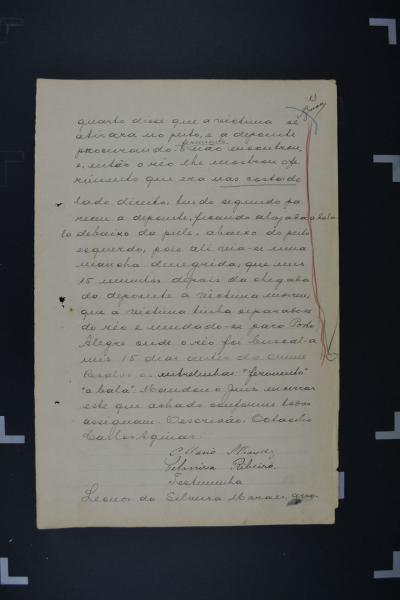 quarto disse que a victima se
atirara no peito, e a depoente
procurando o ferimento não encontrou,
e, então o réo lhe mostrou o fe
rimento que era nas costas do
lado direito, tendo segundo pa
receu a depoente, ficando alojada a bala
debaixo da pelle, abaixo do peito
esquerdo, pois ali via-se uma
mancha denegrida; que uns
15 minutos depois da chegada
da depoente a victima morreu,
que a victima tinha separado-se
do réo e mudado-se para Porto
Alegre onde o réo foi buscal-a
uns 15 dias antes do crime
Resalvo as entrelinhas "ferimento"
"a bala" Mandou o Juiz encerrar
este que achado conforme todos
assignam. O escrivão, Octacilio
Carlos Aguiar.
Ribeiro
Testemunha
Leonor da Silveira Moraes